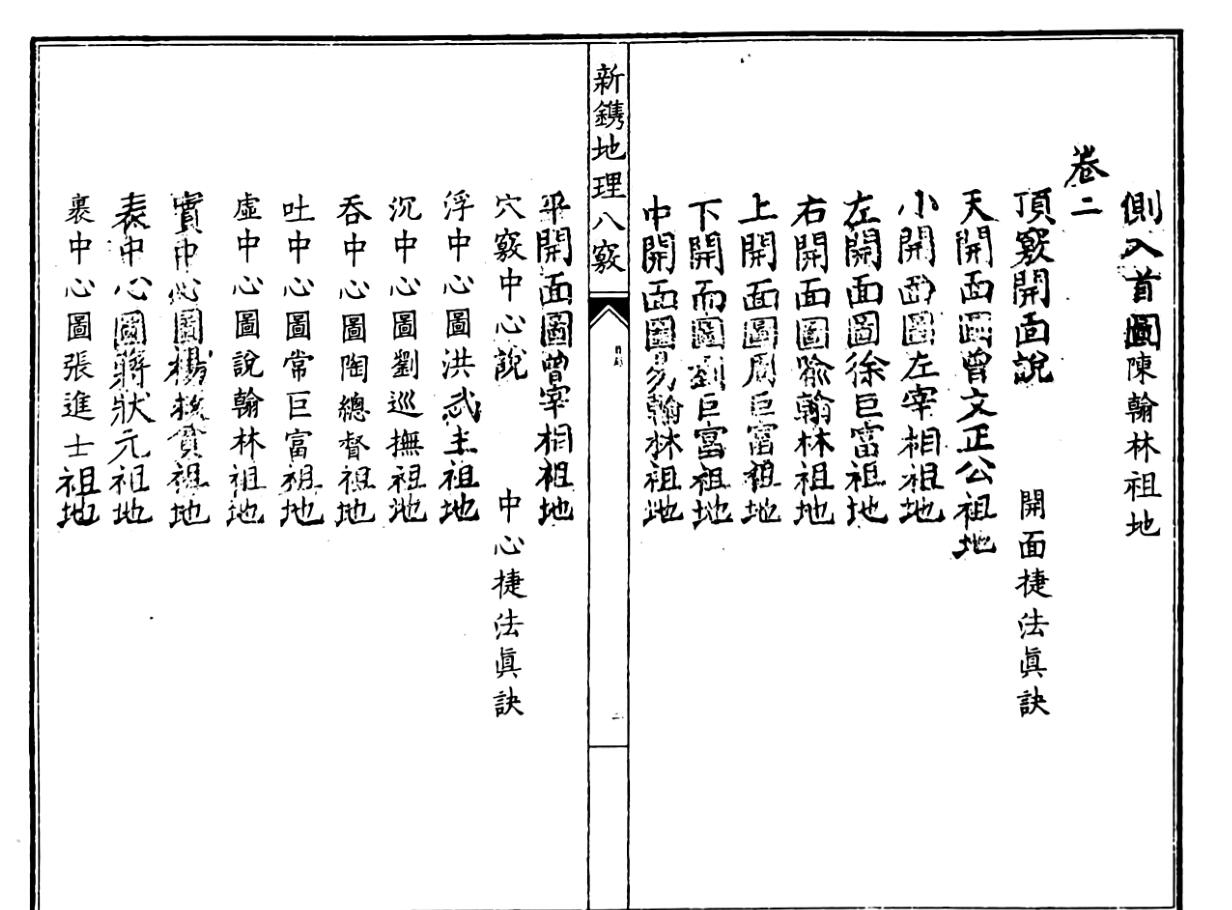 側入首圖陳翰林祖地
卷二
頂竅開面說 開面捷法眞訣
天開面圖曾文正公祖地
小開面圖左宰相祖地
左開面圖徐巨富祖地
右開面圖喻翰林祖地
上開面圖周巨富祖地
下開面圖劉巨富祖地
中開面圖易翰林祖地
新鐫地理八竅
目錄
二
平開面圖曾宰相祖地
穴竅中心說 中心捷法眞訣
浮中心圖洪武主祖地
沉中心圖劉巡撫祖地
吞中心圖陶總督祖地
吐中心圖常巨富祖地
虛中心圖說翰林祖地
實中心圖楊 貢祖地
表中心圖蔣狀元祖地
裏中心圖張進士祖地